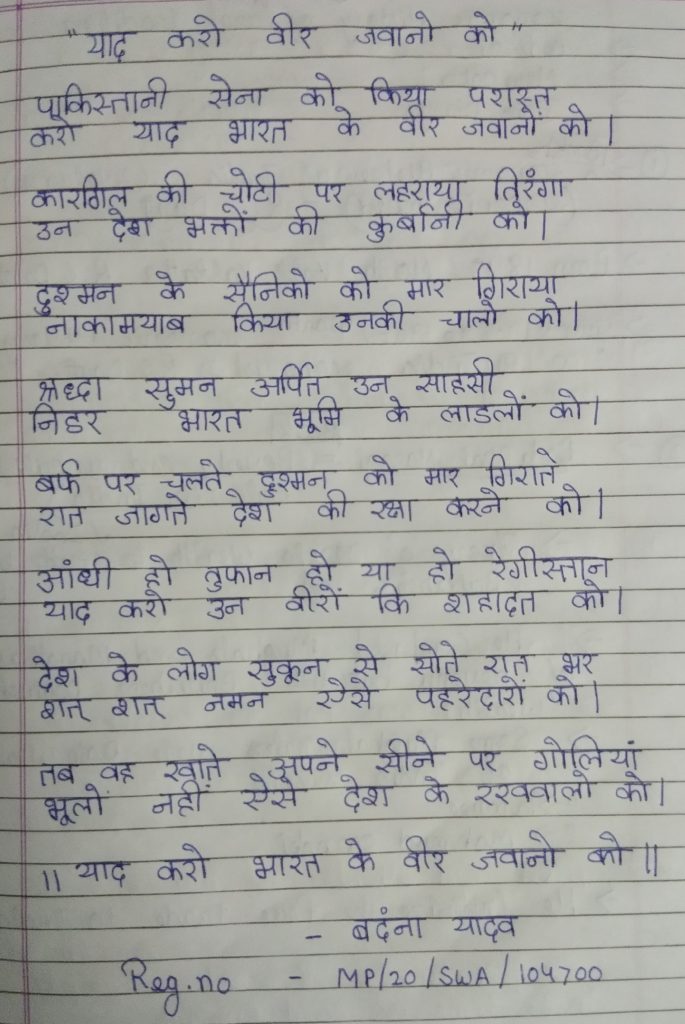 "याद करो वीर जवानो को"
पाकिस्तानी सेना को किया परास्त
करो याद भारत के वीर जवानों को।
कारगिल की चोटी पर लहराया तिरंगा
उन देश भक्तों की कुर्बानी को।
दुश्मन के सैनिको को मार गिराया
नाकामयाब किया उनकी चालो को।
श्रध्दा सुमन अर्पित उन साहसी
निडर भारत भूमि के लाडलों को।
बर्फ पर चलते दुश्मन को मार गिराते
रात जागते देश की रक्षा करने को।
आंधी हो तुफान हो या हो रेगीस्तान
याद करो उन वीरों कि शहादत को।
देश के लोग सुकून से सोते रात भर
शत् शत् नमन ऐसे पहरेदारों को।
तब वह खाते अपने सीने पर गोलियां
भूलों नहीं ऐसे देश के रखवालो को।
|| याद करो भारत के वीर जवानो को ||
- बदंना यादव
Reg.no - MP/20/SWA/104700